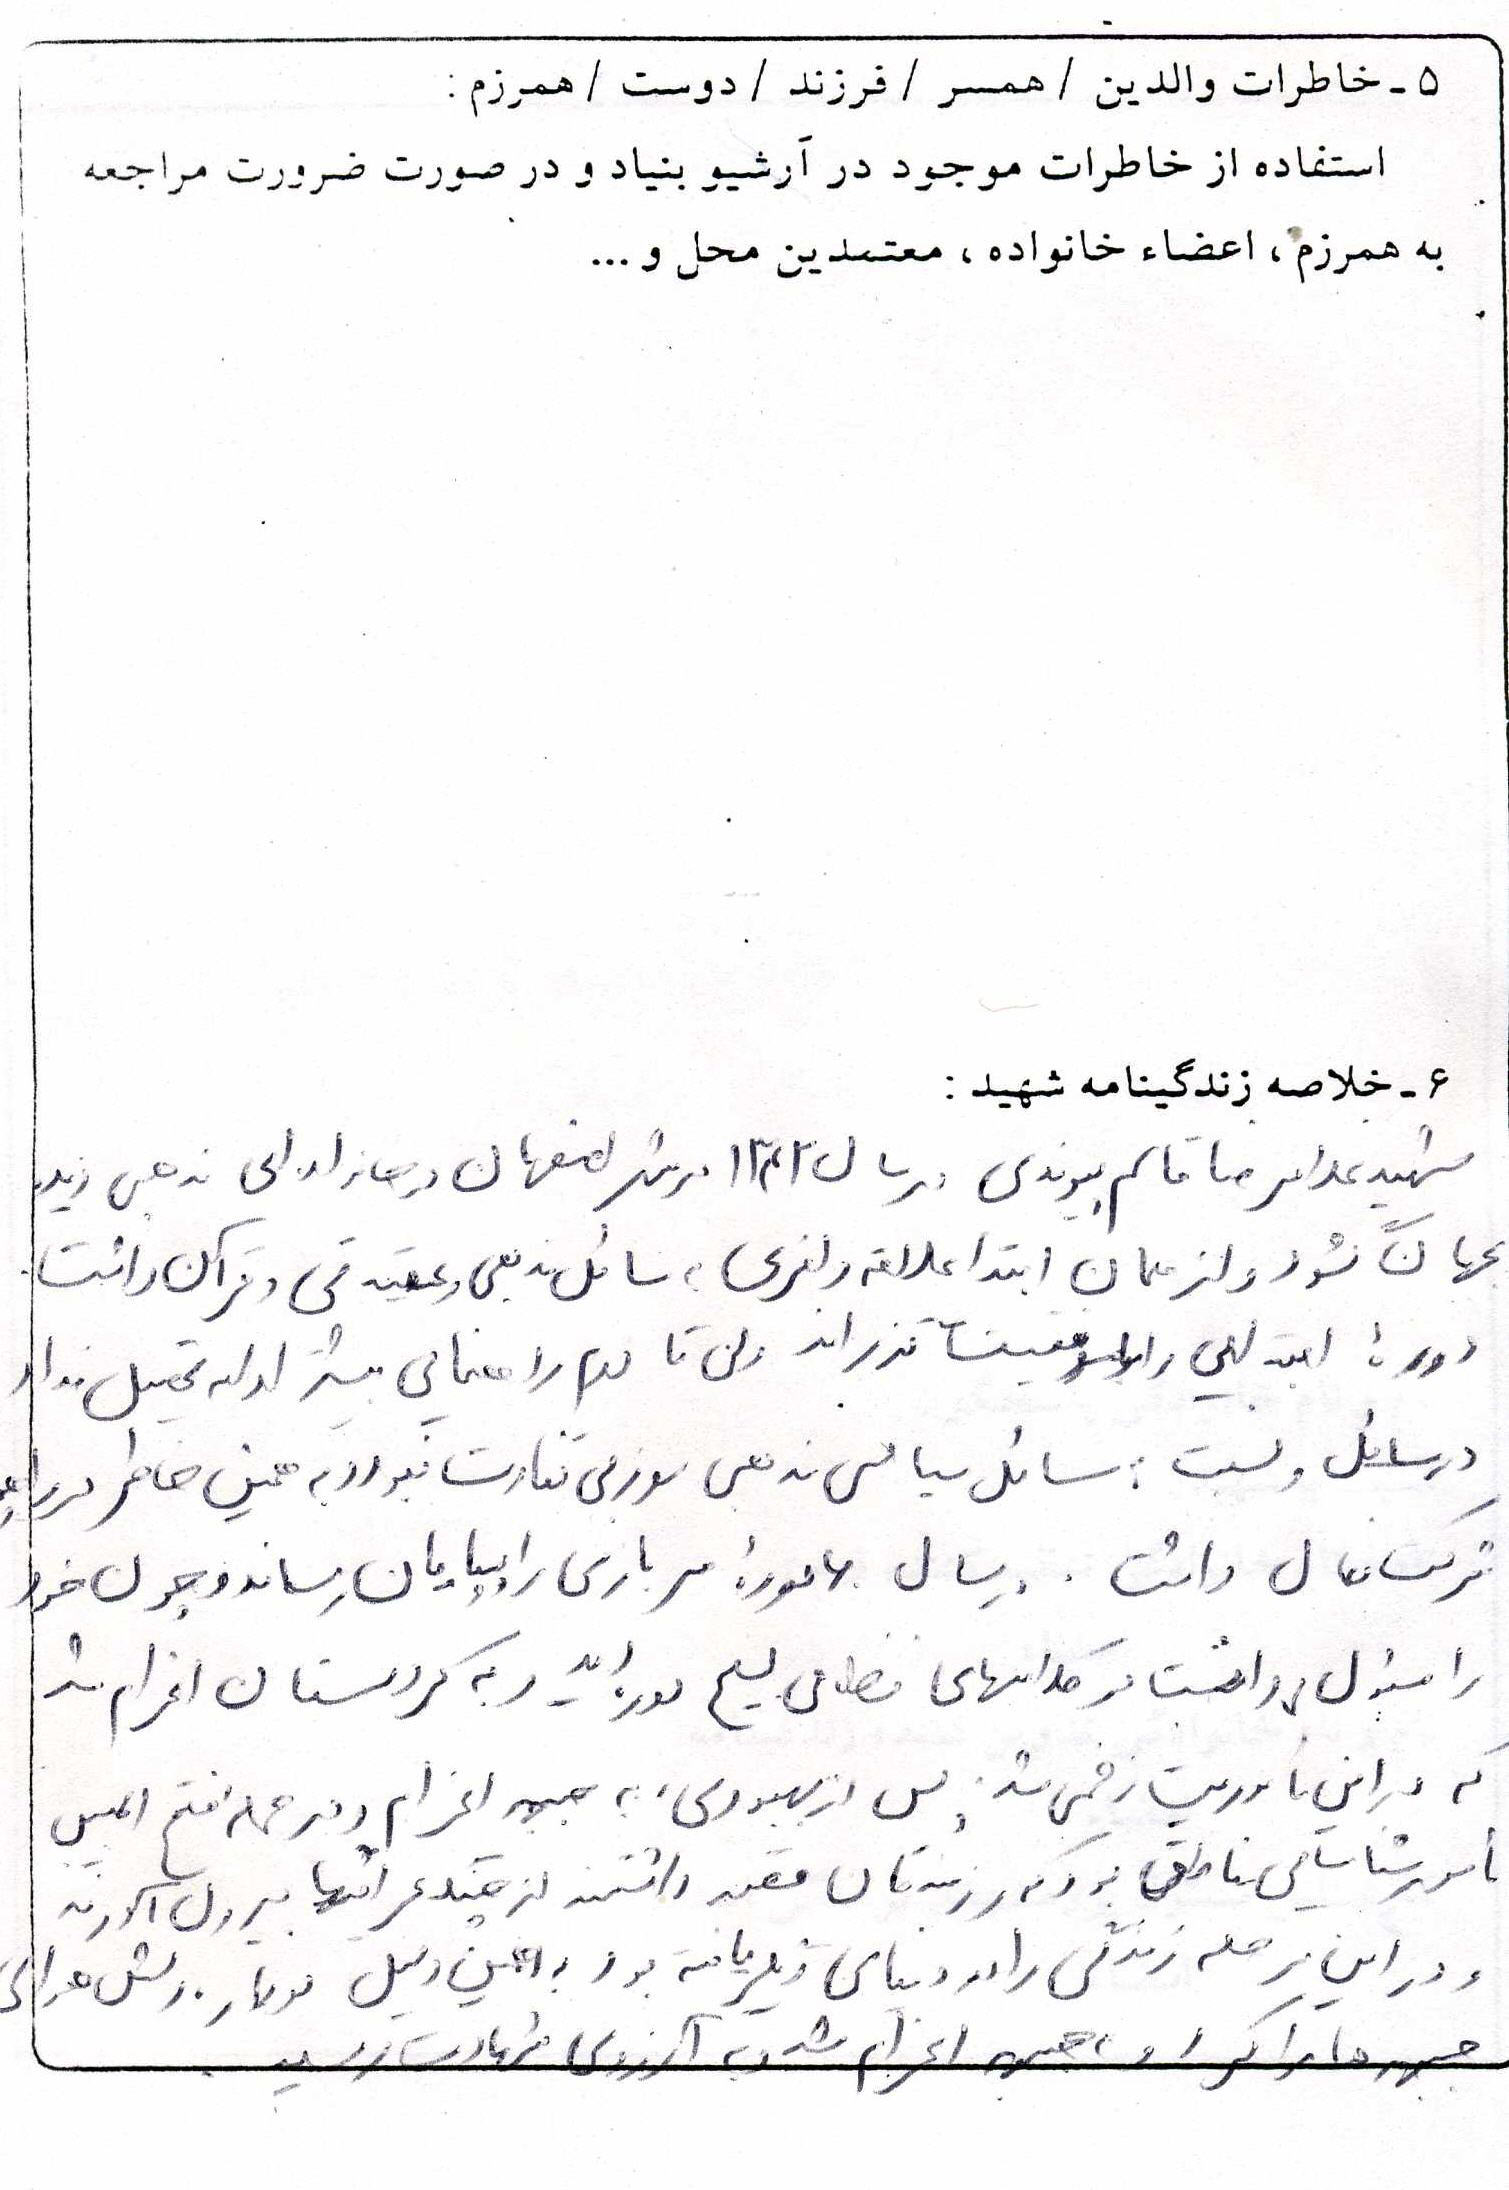 ۵ـ خاطرات والدین / همسر / فرزند / دوست / همرزم :
استفاده از خاطرات موجود در آرشیو بنیاد و در صورت ضرورت مراجعه
به همرزم ، اعضاء خانواده ، معتمدین محل و ...
۶ـ خلاصه زندگینامه شهید :
شهید غلامرضا قاسم پیوندی در سال در شهر اصفهان در خانواده‌ای مذهبی دیده
بجهان گشود و از همان ابتدا علاقه وافری به مسائل مذهبی و عقیدتی و قرآن داشت
دورهٔ ابتدایی را با موفقیت گذراند ولی تا دوم راهنمایی بیشتر ادامه تحصیل نداد
و نسبت به مسائل سیاسی مذهبی بی تفاوت نبود و به همین خاطر در
شرکت فعال داشت . در سال دورهٔ سربازی را بپایان رساند و چون خود
را مسئول در کلاسهای نظامی بسیج دوره دید و به کردستان اعزام شد
که در این مأموریت زخمی شد و پس از بهبودی به جبهه اعزام و در حمله فتح المبین
مأمور شناسایی مناطقی بود که رزمندگان قصد داشتند از چنگ عراقیها بیرون آورند
و در این مرحله زندگی را در دنیای دیگر یافته بود به همین دلیل دوبار دلش هوای
جبهه ها را کرد و به جبهه اعزام شد و به آرزوی شهادت رسید .